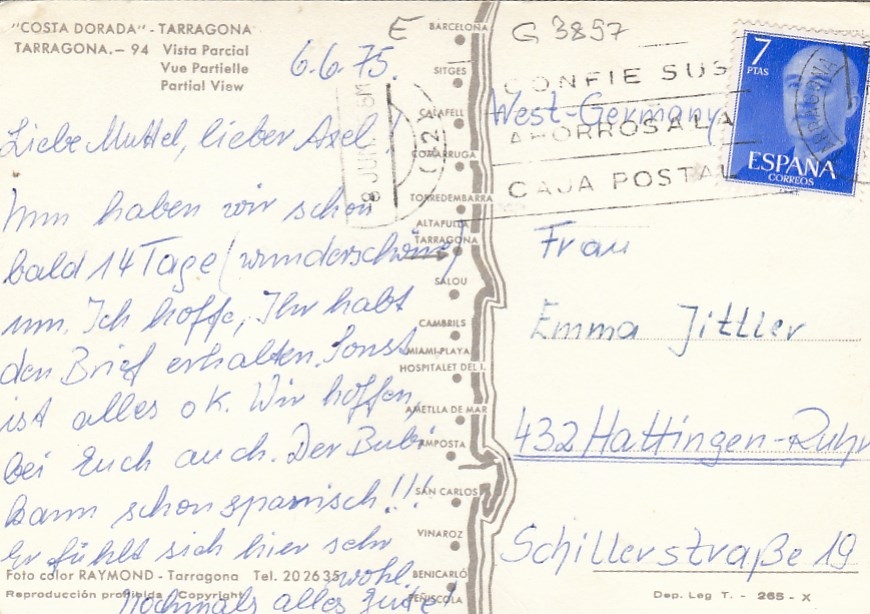 "COSTA DORADA" - TARRAGONA
TARRAGONA.- 94 Vista Parcial
Vue Partielle
Partial View
6.6.75.
Liebe Muttel, lieber Axel!
Nun haben wir schon
bald 14 Tage (wunderschöne)
um. Ich hoffe, Ihr habt
den Brief erhalten. Sonst
ist alles ok. Wir hoffen,
bei Euch auch. Der Bubi
kann schon spanisch!!!
Er fühlt sich hier sehr
wohl.
Nochmals alles Gute!
Foto color RAYMOND - Tarragona Tel. 202635
Reproducción prohibida Copyright
E
BARCELONA
SITGES
CALAFELL
COMARRUGA
TORREDEMBARRA
ALTAFULLA
TARRAGONA
SALOU
CAMBRILS
MIAMI-PLAYA
HOSPITALET DEL I.
AMETLLA DE MAR
AMPOSTA
SAN CARLOS
VINAROZ
BENICARLÓ
PEÑISCOLA
G 3897
8 JUN
CONFIE SUS
AHORROS A LA
CAJA POSTAL
7
PTAS
ESPAÑA
CORREOS
TARRAGONA
West-Germany
Frau
Emma Jittler
432 Hattingen-Ruhr
Schillerstraße 19
Dep. Leg T. - 265 - X